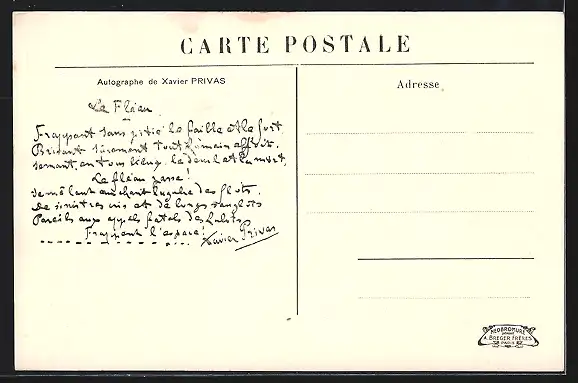 CARTE POSTALE
Autographe de Xavier PRIVAS
Adresse
Le Fléau
Frappant sans pitié le faible et le fort,
Brisant sûrement tout humain effort,
Semant, en tous lieux, le deuil et la mort,
Le fléau passe!
Se mêlant au chant lugubre des flots,
De sinistres cris et de longs sanglots
Pareils aux appels fatals des
Frappent l'espace!
Xavier Privas
NEOBROMURE
A. BREGER FRERES
PARIS